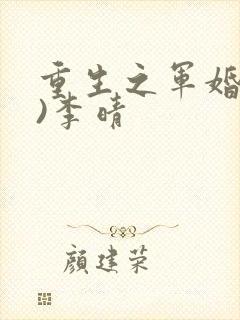 重生之军婚
)李晴
颜建荣